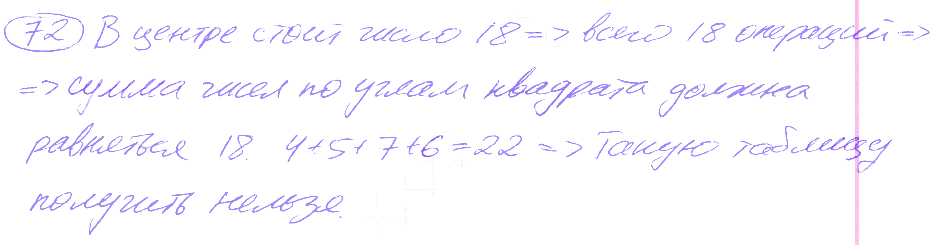 72 В центре стоит число 18 => всего 18 операций =>
=> сумма чисел по углам квадрата должна
равняться 18. 4+5+7+6=22 => Такую таблицу
получить нельзя.